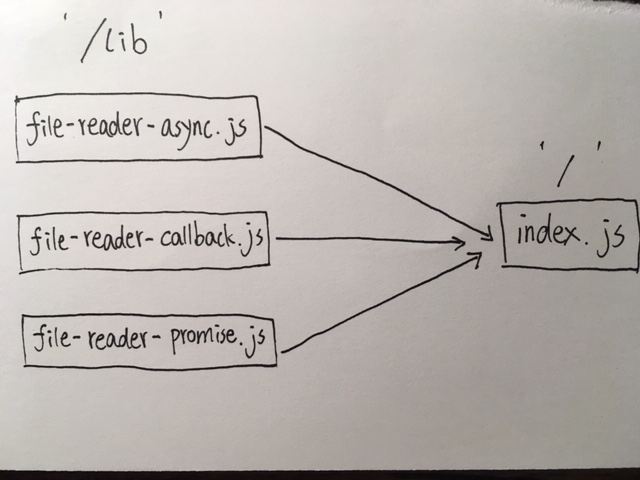 '/lib'
file-reader-async.js
file-reader-callback.js
file-reader-promise.js
'/'
index.js